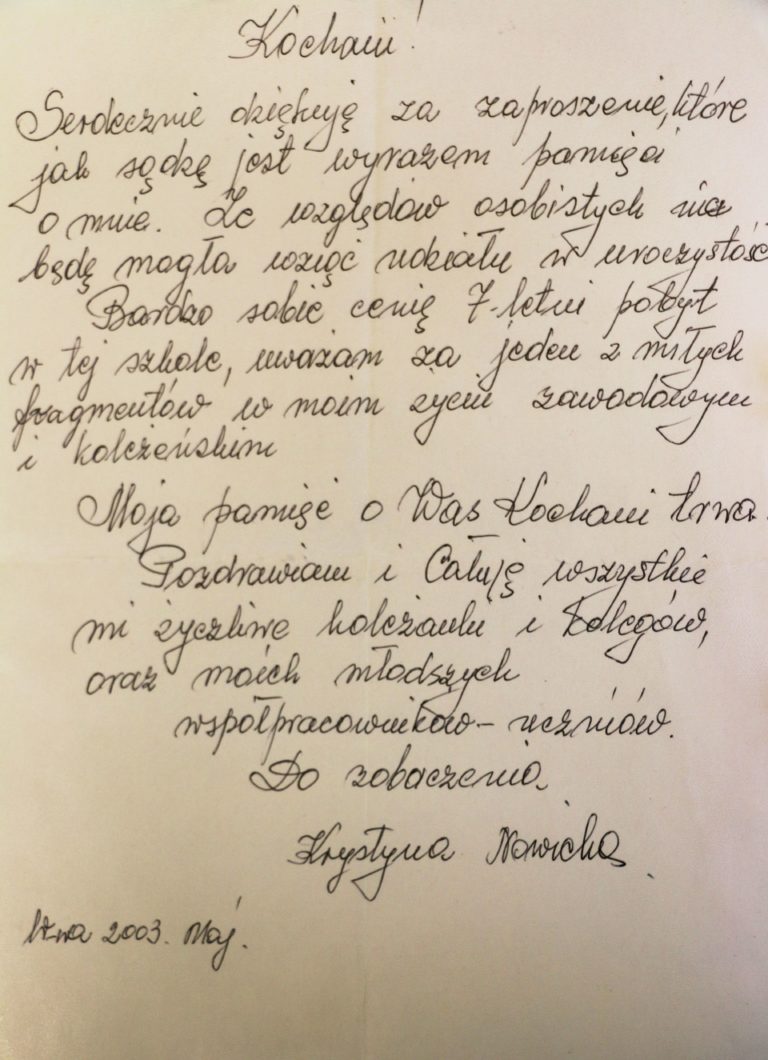 Kochani!
Serdecznie dziękuję za zaproszenie, które
jak sądzę jest wyrazem pamięci
o mnie. Ze względów osobistych nie
będę mogła wziąć udziału w uroczystość
Bardzo sobie cenię 7-letni pobyt
w tej szkole, uważam za jeden z miłych
fragmentów w moim życiu zawodowym
i koleżeńskim
Moja pamięć o Was Kochani trwa.
Pozdrawiam i Całuję wszystkie
mi życzliwe koleżanki i kolegów,
oraz moich młodszych
współpracowników - uczniów.
Do zobaczenia.
Krystyna Nowicka.
2003. Maj.